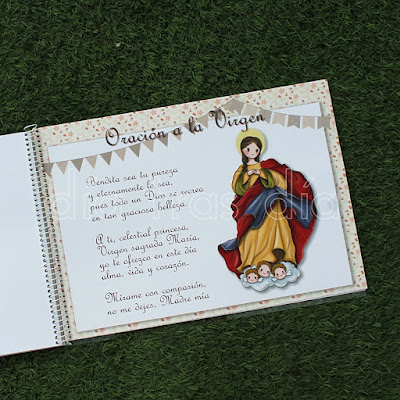 Oración a la Virgen
Bendita sea tu pureza
y eternamente lo sea,
pues todo un Dios se recrea
en tan graciosa belleza
A ti, celestial princesa,
Virgen sagrada María,
yo te ofrezco en este día
alma, vida y corazón.
Mírame con compasión,
no me dejes, Madre mía